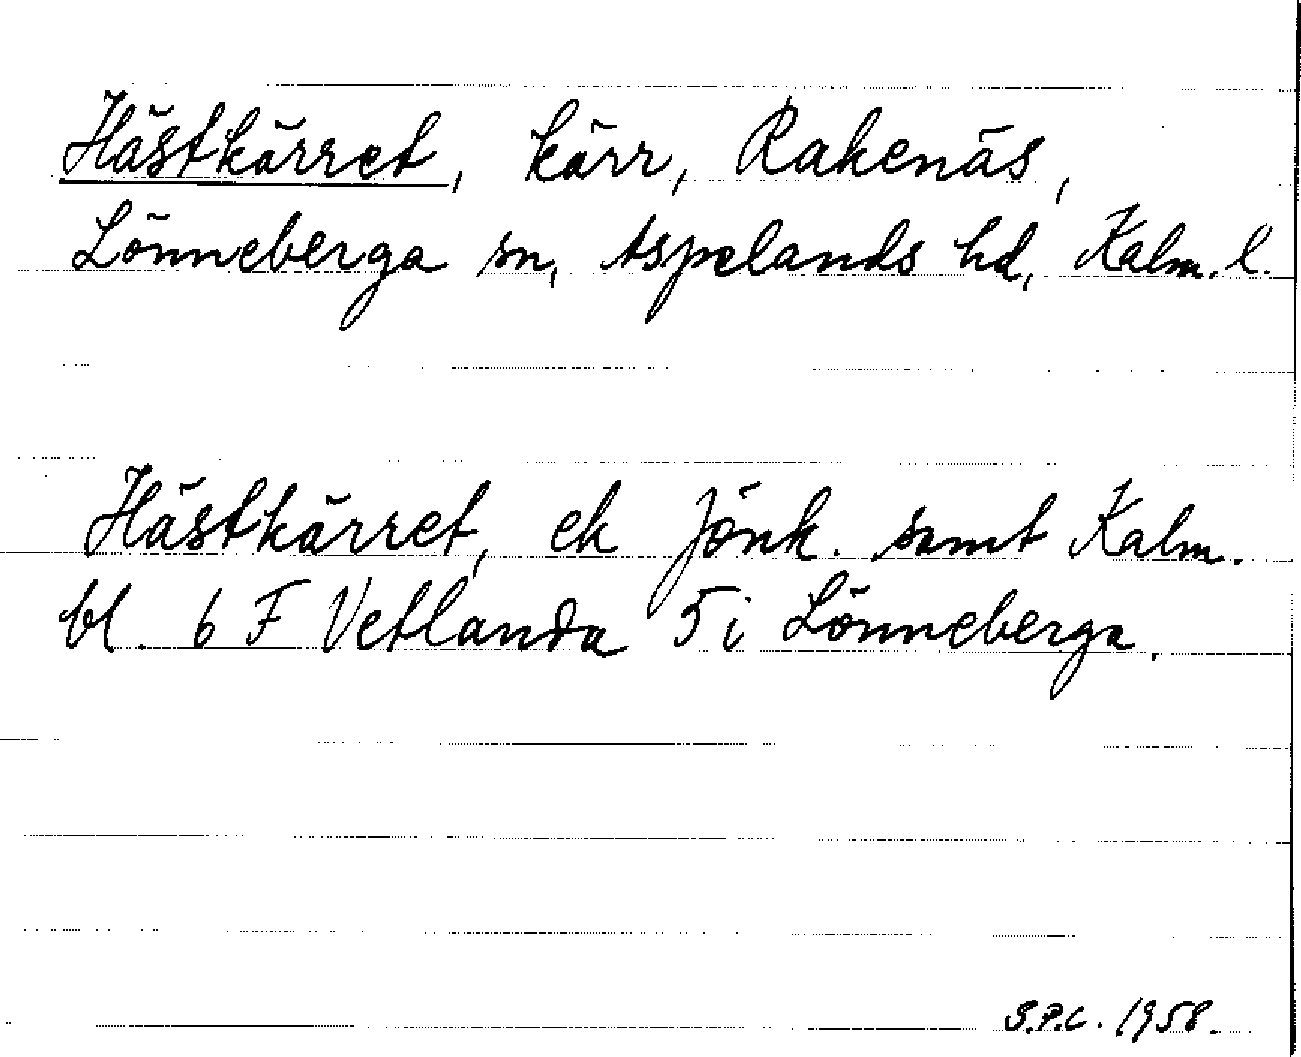 Hästkärret, kärr, Rakenäs,
Lönneberga sn, Aspelands hd, Kalm. l.
Hästkärret, ek Jönk. samt Kalm.
bl. 6 F Vetlanda 5 i Lönneberga.
S.P.C. 1958.